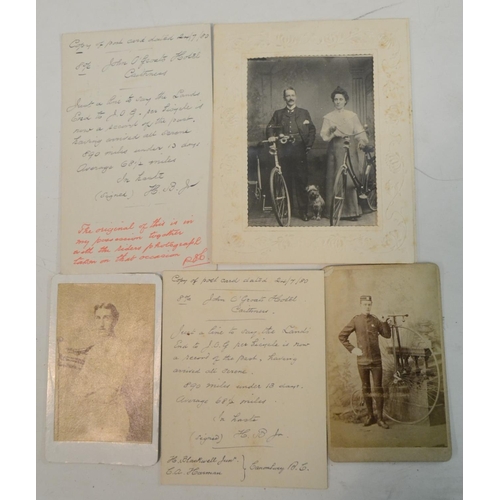 Copy of post card dated 24/7/80
John O'Groats Hotel
Caithness
Just a line to say the Lands
End to J.O.G. per tricycle is
now a record of the past,
having arrived all serene
890 miles under 13 days
Average 68½ miles
In haste
(signed) H. B. Jr
The original of this is in
my possession together
with the riders photograph
taken on that occasion
Copy of post card dated 24/7/80
John O'Groats Hotel
Caithness
Just a line to say the Lands
End to J.O.G. per tricycle is now
a record of the past, having
arrived all serene.
890 miles under 13 days.
Average 68½ miles.
In haste
(signed) H. B. Jr
H. Blackwell Junr
C.A. Harman
Canonbury B.C.